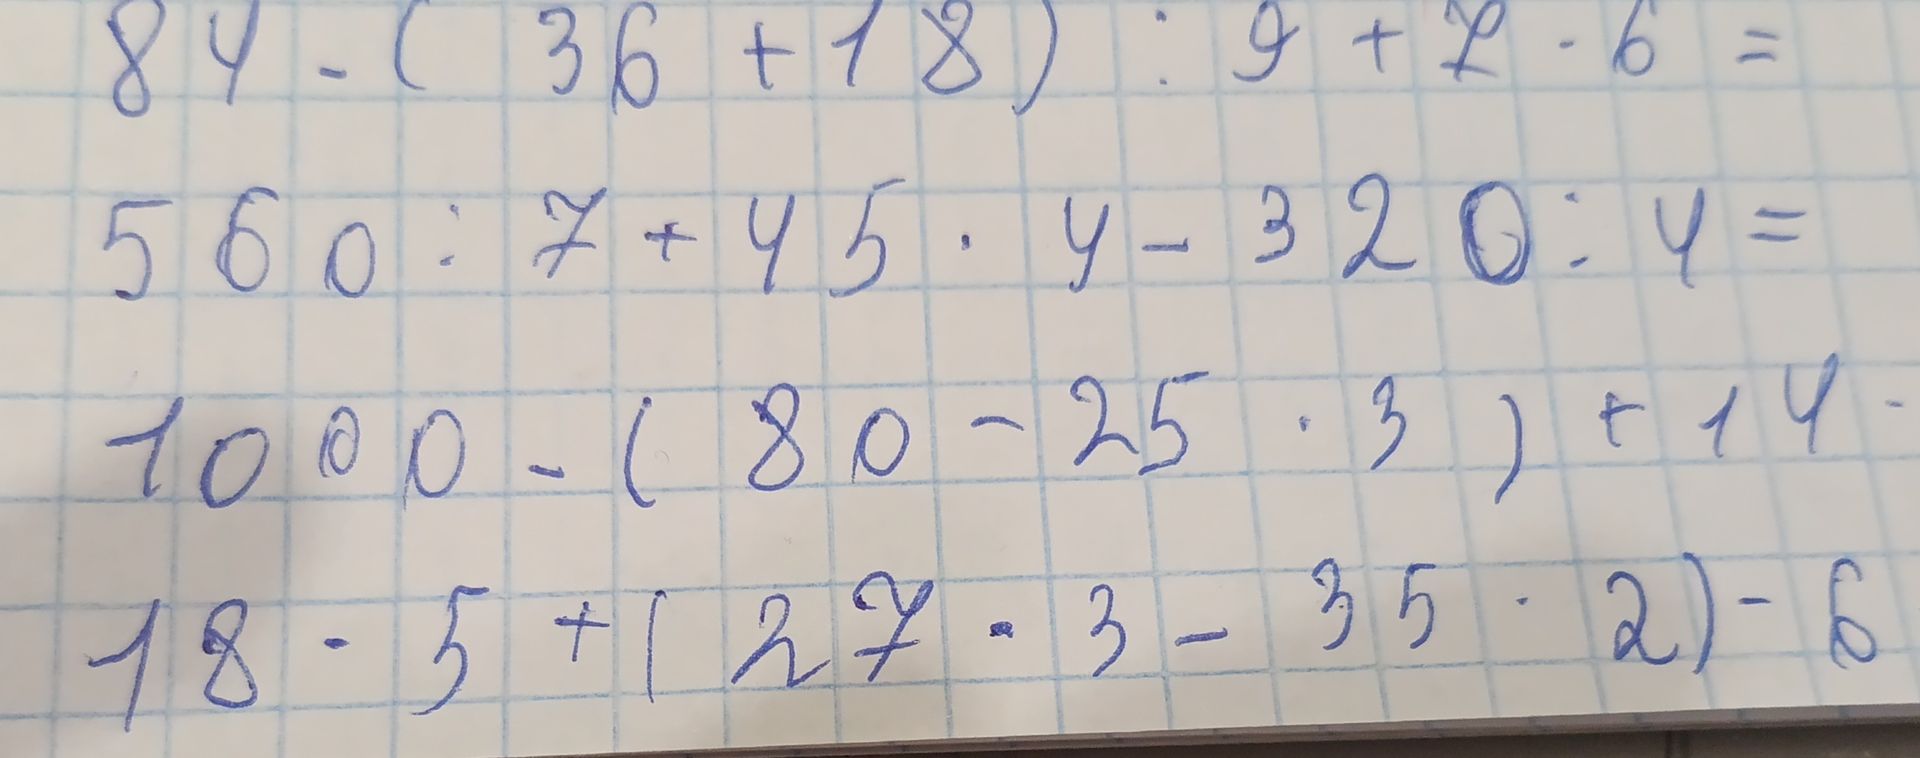 84 - (36 + 18) : 9 + 7 · 6 =
560 : 7 + 45 · 4 - 320 : 4 =
1000 - (80 - 25 · 3) + 14 ·
18 · 5 + (27 · 3 - 35 · 2) - 6